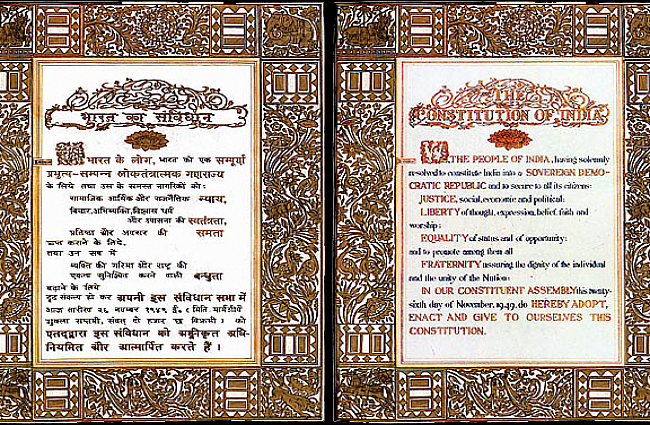 भारत का संविधान
हम भारत के लोग, भारत को एक सम्पूर्ण
प्रभुत्व-सम्पन्न लोकतंत्रात्मक गणराज्य
के लिये तथा उस के समस्त नागरिकों को:
सामाजिक आर्थिक और राजनैतिक न्याय,
विचार,अभिव्यक्ति,विश्वास धर्म
और उपासना की स्वतंत्रता,
प्रतिष्ठा और अवसर की समता
प्राप्त कराने के लिये,
तथा उन सब में
व्यक्ति की गरिमा और राष्ट्र की
एकता सुनिश्चित करने वाली बन्धुता
बढ़ाने के लिये
दृढ़ संकल्प हो कर अपनी इस संविधान सभा में
आज तारीख २६ नवम्बर १९४९ ई॰ (मिति मार्गशीर्ष
शुक्ला सप्तमी, संवत् दो हजार छ विक्रमी) को
एतद्द्वारा इस संविधान को अङ्गीकृत अधि-
नियमित और आत्मार्पित करते हैं ।
THE
CONSTITUTION OF INDIA
WE, THE PEOPLE OF INDIA, having solemnly
resolved to constitute India into a SOVEREIGN DEMO-
CRATIC REPUBLIC and to secure to all its citizens:
JUSTICE, social, economic and political;
LIBERTY of thought, expression, belief, faith and
worship;
EQUALITY of status and of opportunity;
and to promote among them all
FRATERNITY assuring the dignity of the individual
and the unity of the Nation;
IN OUR CONSTITUENT ASSEMBLY this twenty-
sixth day of November, 1949, do HEREBY ADOPT,
ENACT AND GIVE TO OURSELVES THIS
CONSTITUTION.